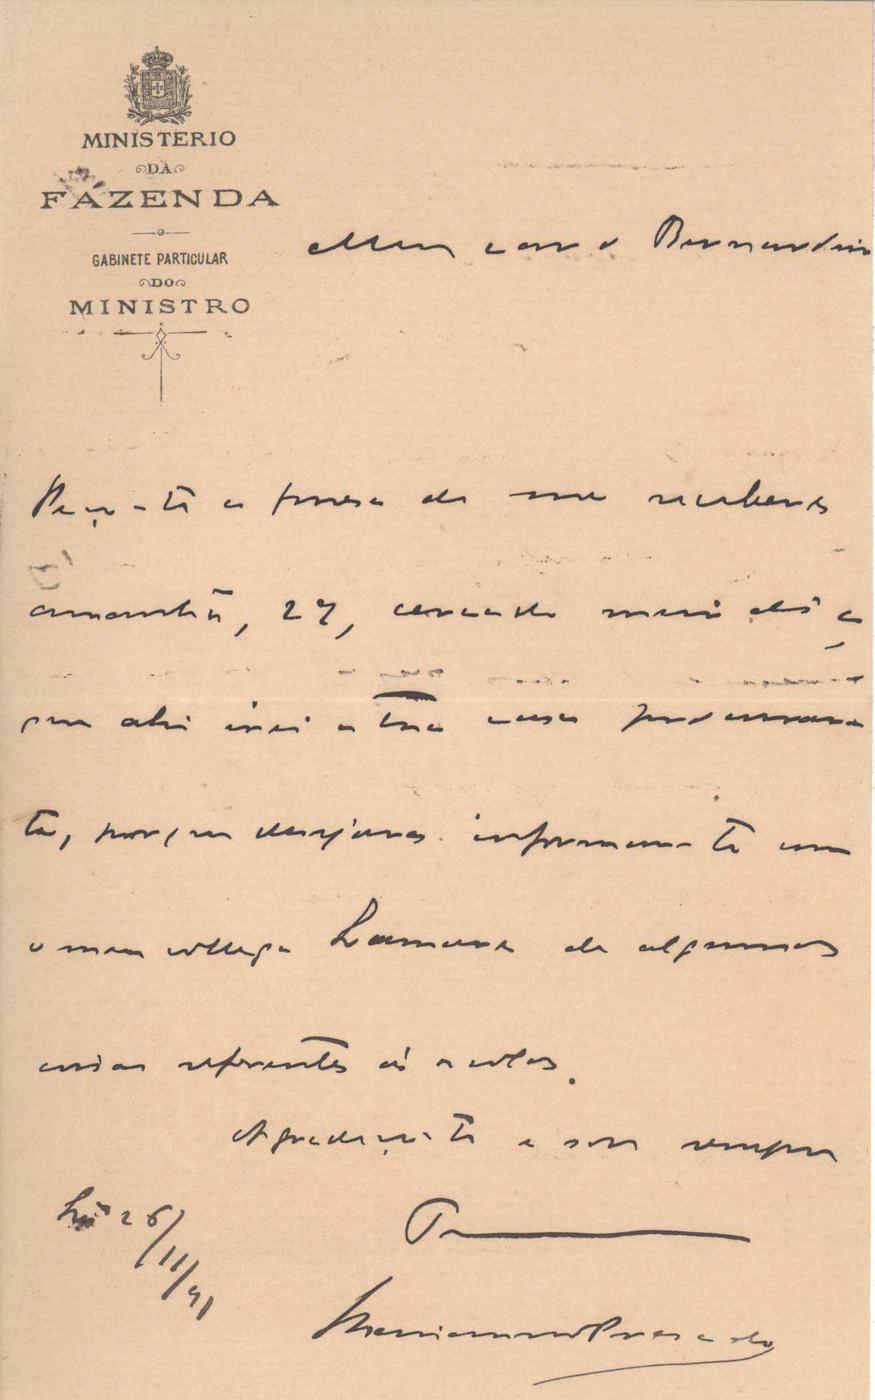 MINISTERIO
DA
FAZENDA
GABINETE PARTICULAR
DO
MINISTRO
Meu caro Bernardino
Peço-te a fineza de me receberes
amanhã, 27, cerca do meio dia e
que ahi irei a tua casa
te, porque desejava informar-te com
o meu collega de algumas
referentes ás
Agradeço-te e sou sempre
26/11/91
Marianno Presado